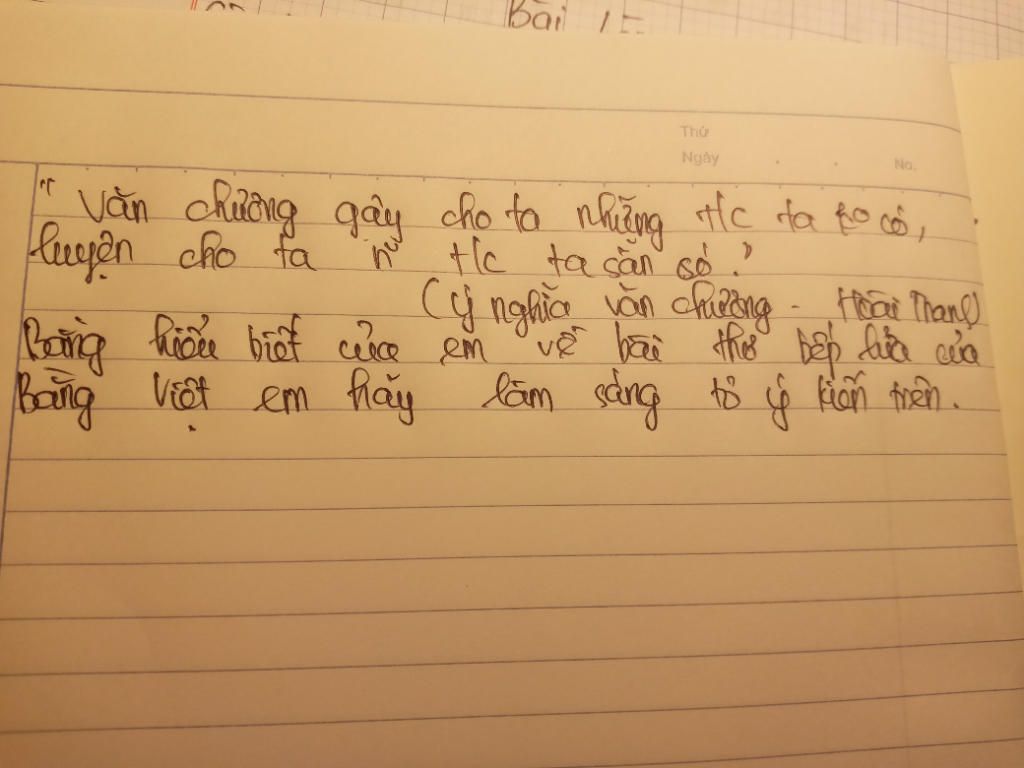 Bài 15
Thứ
Ngày No.
"Văn chương gây cho ta những t/c ta ko có,
luyện cho ta n~ t/c ta sẵn só."
(ý nghĩa văn chương - Hoài Thanh)
Bằng hiểu biết của em về bài thơ bếp lửa của
Bằng Việt em hãy làm sáng tỏ ý kiến trên.